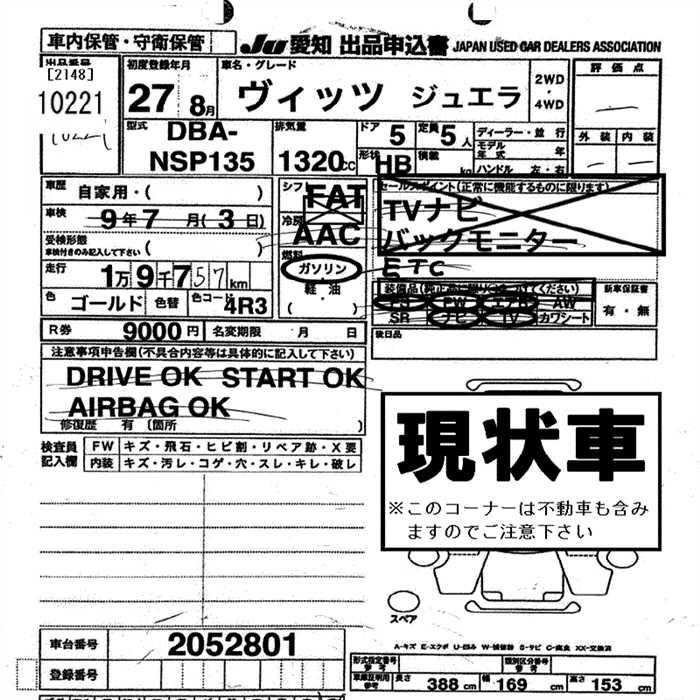 車内保管・守衛保管
JU 愛知 出品申込書 JAPAN USED CAR DEALERS ASSOCIATION
出品番号
[2148]
10221
10221
初度登録年月
27 8月
車名・グレード
ヴィッツ ジュエラ
2WD
・
4WD
評価点
外装 内装
型式
DBA-
NSP135
排気量
1320cc
ドア 5
定員 5人
形状 HB
積載 kg
ディーラー・並行
モデル
年式 年
ハンドル 左・右
車歴
自家用・( )
車検
9年7月(3日)
受検形態
車検付きのみ記入して下さい ( )
走行
1万9千757km
色 ゴールド 色替 色コード 4R3
シフト FAT
冷房 AAC
燃料
ガソリン
軽・油
( )
セールスポイント(正常に機能するものに限ります)
TVナビ
バックモニター
ETC
装備品(純正品に限り○をつけてください)
PS PW エアB AW
SR ナビ TV カワシート
新車保証書
有・無
後日品
R券 9000円 名変期限 月 日
注意事項申告欄(不具合内容等は具体的に記入して下さい)
DRIVE OK START OK
AIRBAG OK
修復歴 有〔箇所 〕
検査員
記入欄
FW キズ・飛石・ヒビ割・リペア跡・X要
内装 キズ・汚レ・コゲ・穴・スレ・キレ・破レ
現状車
※このコーナーは不動車も含み
ますのでご注意下さい
スペア
A-キズ E-エクボ U-凹み W-補修跡 S-サビ C-腐食 XX-交換済
車台番号 2052801
登録番号
形式指定番号
参考
類別区分番号
参考
車庫証明用
参考
長さ 388cm 幅 169cm 高さ 153cm